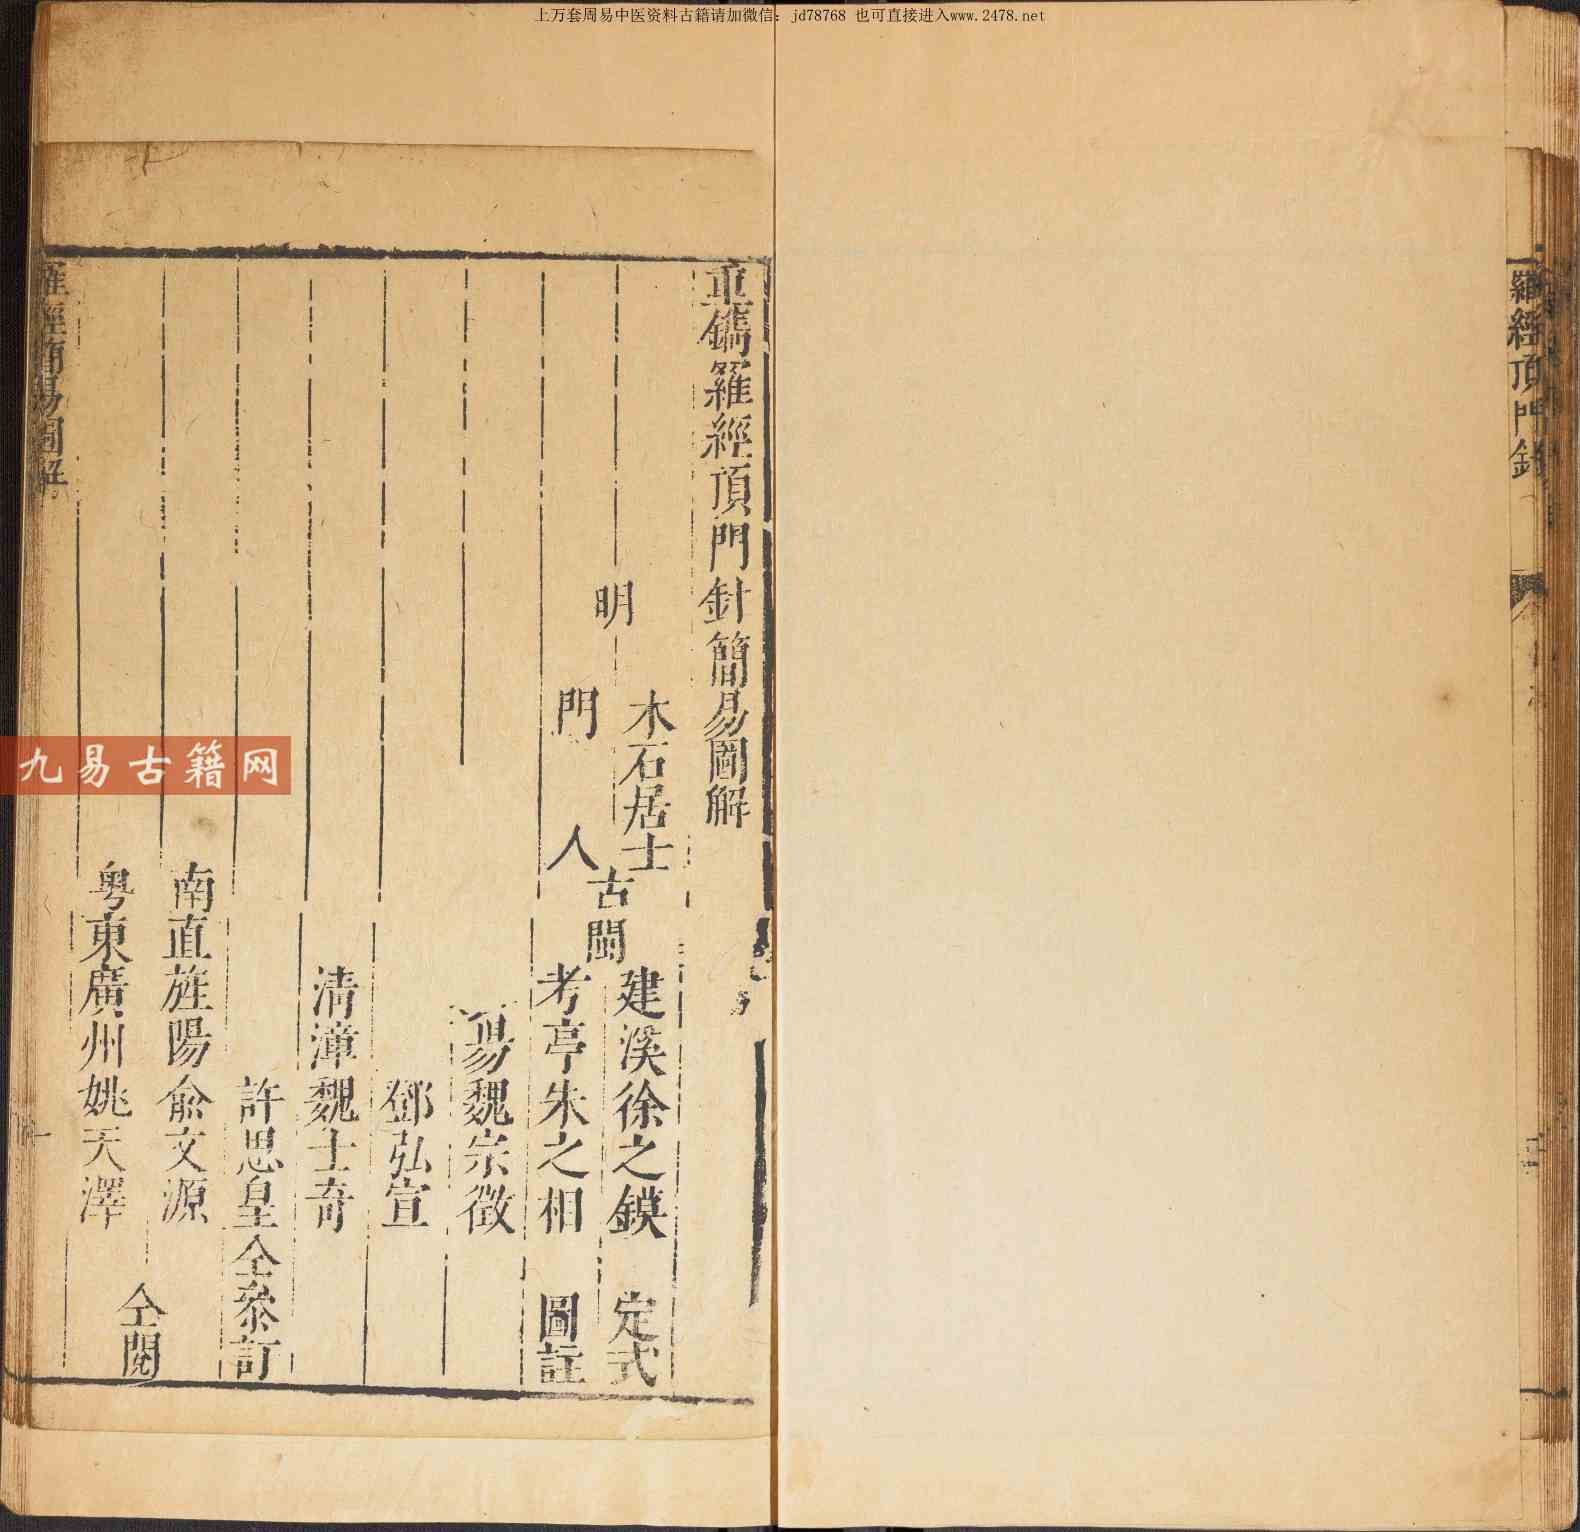 上万套周易中医资料古籍请加微信：jd78768 也可直接进入www.2478.net
羅經頂門針
重鐫羅經頂門針簡易圖解
明
木石居士
門人
古閩
建溪徐之鏌 定式
考亭朱之相 圖註
魏宗徵
鄧弘宣
清漳魏士奇
許思皇仝叅訂
南直旌陽俞文源
粤東廣州姚天澤
仝閱
羅經簡易圖解
一
九易古籍网